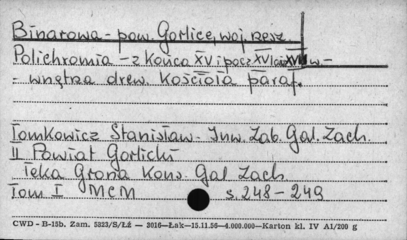 Binarowa - pow. Gorlice, woj. rzesz.
Polichromia - z końca XV i pocz XVI oraz XVII w -
- wnętrza drew. kościoła paraf.
Tomkowicz Stanisław - Inw. Zab. Gal. Zach.
II Powiat Gorlicki
Teka Grona Kons. Gal Zach
Tom I MCM s. 248 - 249
CWD - B-15b. Zam. 5323/S/Łź — 2016—Łak—15.11.56—6.000.000—Karton kl. IV A1/200 g